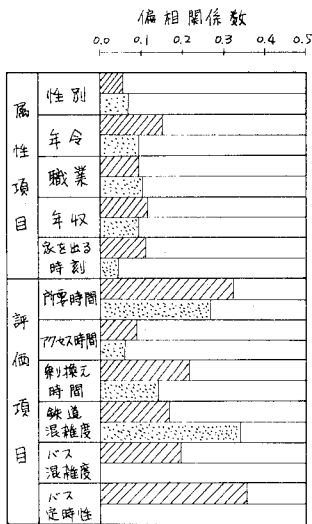 偏相関係数
0.0 0.1 0.2 0.3 0.4 0.5
属性項目
性別
年令
職業
年収
家を出る
時刻
評価項目
所要時間
アクセス時間
乗換え
時間
鉄道
混雑度
バス
混雑度
バス
定時性